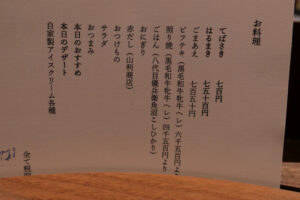 お料理
てばさき 七百円
はるまき 七五十円
ごまあえ 七百五十円
ビフテキ(黒毛和牛牝牛ヘレ)六千五百円より
照り焼(黒毛和牛牝牛ヘレ)四千五百円より
ごはん(八代目儀兵衛魚沼こしひかり)
おにぎり
赤だし(山利商店)
おつけもの
サラダ
おつまみ
本日のおすすめ
本日のデザート
自家製アイスクリーム各種
全て税